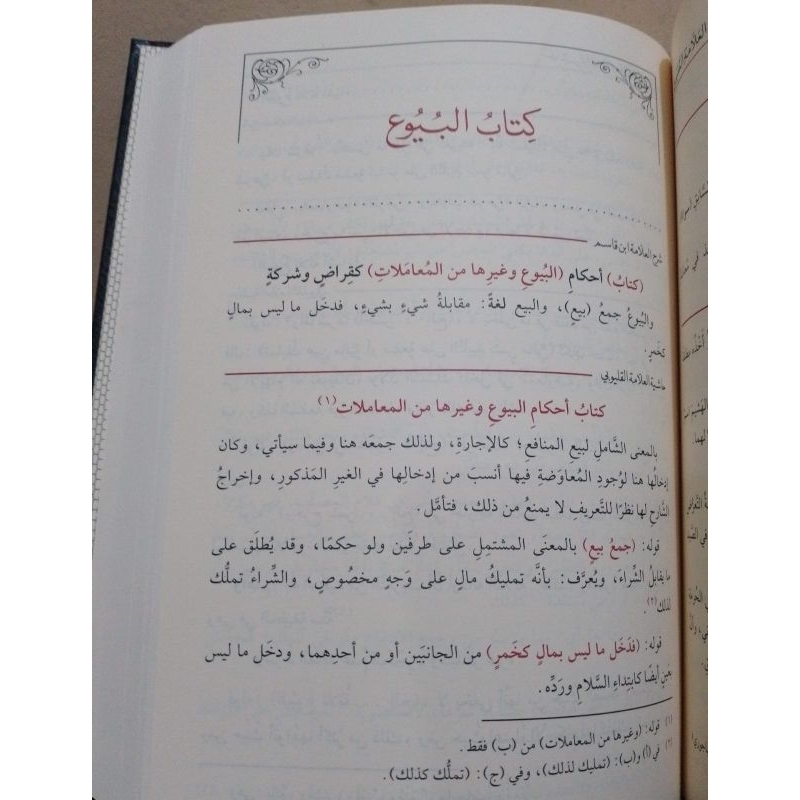 كِتابُ البُيُوع
شرح العلامة ابن قاسم
(كتابُ) أحكامِ (البُيوعِ وغيرِها من المُعامَلاتِ) كقِراضٍ وشركةٍ
والبُيُوعُ جمعُ (بيعٍ)، والبيع لغةً: مقابلةُ شيءٍ بشيءٍ، فدخَل ما ليس بمالٍ
كخَمرٍ.
حاشية العلامة القليوبي
كتابُ أحكامِ البيوعِ وغيرِها من المعاملات(١)
بالمعنى الشَّاملِ لبيعِ المنافعِ؛ كالإجارةِ، ولذلك جمعَه هنا وفيما سيأتي، وكان
إدخالُها هنا لوُجودِ المُعاوَضةِ فيها أنسبَ من إدخالِها في الغيرِ المَذكورِ، وإخراجُ
الشَّارحِ لها نظرًا للتَّعريفِ لا يمنعُ من ذلك، فتأمَّل.
قوله: (جمعُ بيعٍ) بالمعنَى المشتمِلِ على طرفَينِ ولو حكمًا، وقد يُطلَق على
ما يقابلُ الشِّراءَ، ويُعرَّف: بأنَّه تمليكُ مالٍ على وَجهٍ مخصُوصٍ، والشِّراءُ تملُّك
لذلك(٢).
قوله: (فدَخَل ما ليس بمالٍ كخَمرٍ) من الجانبَين أو من أحدِهما، ودخَل ما ليس
بعَينٍ أيضًا كابتِداءِ السَّلامِ وردِّه.
(١) قوله: (وغيرها من المعاملات) من (ب) فقط.
(٢) في (أ) و(ب): (تمليك لذلك)، وفي (ج): (تملُّك كذلك).